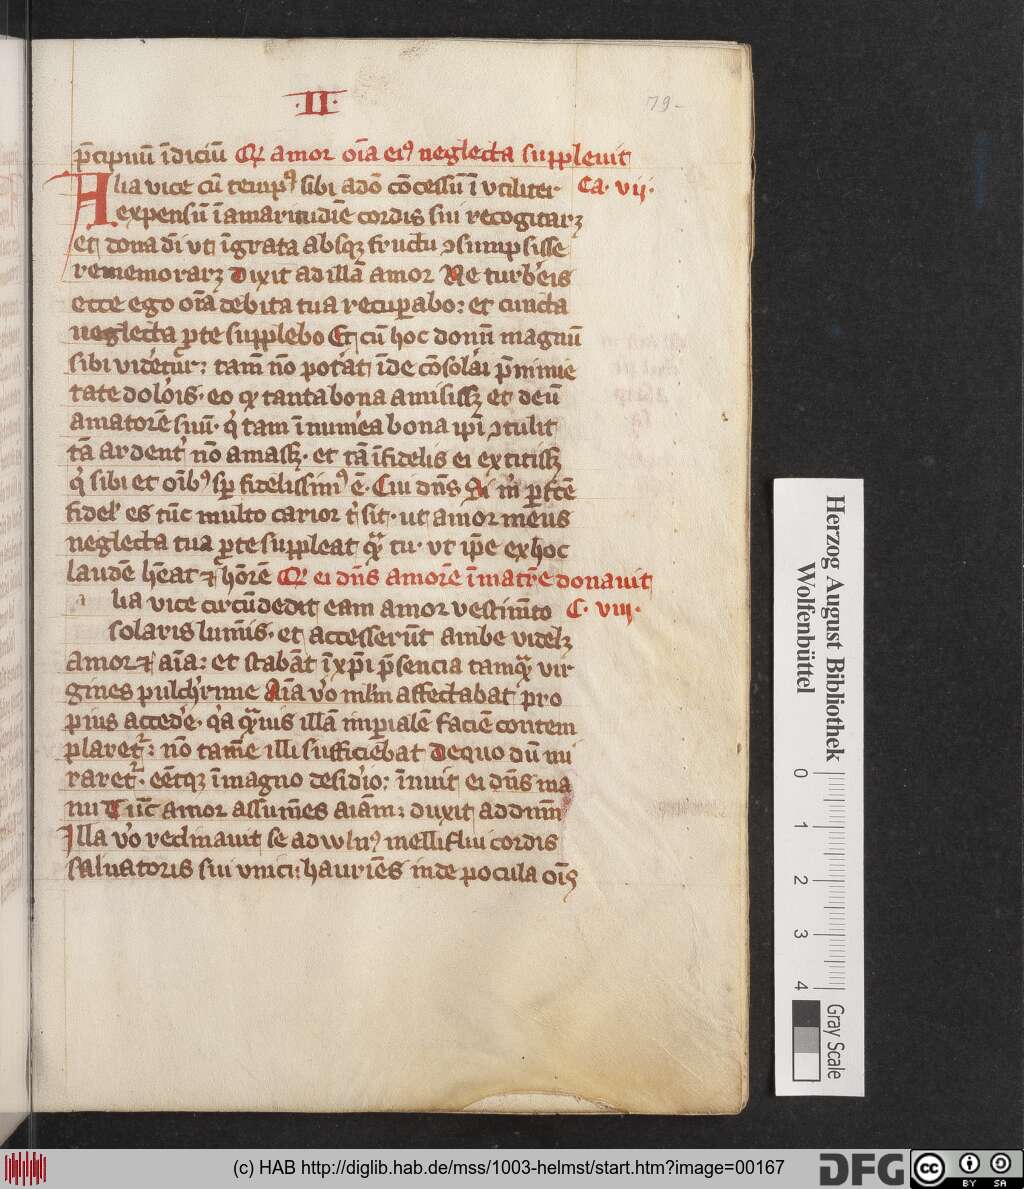 ·II·
79
p̄cipuū īdiciū Qꝛ amor oīa eiꝰ neglecta suppleuit
Alia vice cū tempꝰ sibi a dō cōcessū ī vtiliter Ca· vii·
expensū ī amaritudīe cordis sui recogitarꝫ
et dona dī vt īgrata absqꝫ fructu ꝯsumpsisse
rememorarꝫ dixit ad illā amor Ne turb̄eis
ecce ego oīa debita tua recuꝑabo: et cuncta
neglecta ꝑte supplebo Et cū hoc donū magnū
sibi videretur: tam̄ nō poterat īde cōsolari p̄ nimie
tate doloris· eo qꝫ tanta bona amisissꝫ et deū
amatorē suū· qͥ tam īnumera bona ip̄i ꝯtulit
tā ardentͬ nō amasꝫ· et tā īfidelis ei extitissꝫ
qͥ sibi et oībꝰ sꝑ fidelissimꝰ ē· Cui dn̄s Si mͥ ꝑfcē
fidelˢ es tūc multo carior tͥ sit· ut amor meus
neglecta tua ꝑte suppleat qͣ̄ tu· vt ip̄e ex hoc
laudē h̄eat ⁊ hōrē Qꝛ ei dn̄s amorē ī matrē donauit
a lia vice circūdedit eam amor vestimto C· viii·
solaris lumīs· et accesserūt ambe videlꝫ
amor ⁊ aīa: et stabāt ī xp̄i p̄sencia tamqͣ̄ vir
gines pulch̓rime Aīa v̓o mltm̄ affectabat pro
pius acced̓e· qͥa qͣ̄uis illā imperialē faciē contem
plaretͬ: nō tamē illi sufficiēbat de quo dū mi
raretͬ· eētqꝫ ī magno desid̓io: īnuit ei dn̄s ma
nu Tūc amor assūmēs aīam: duxit ad dnm̄
Illa v̓o reclinauit se ad wlnꝰ melliflui cordis
saluatoris sui vnici: hauriēs inde pocula oīs
Herzog August Bibliothek
Wolfenbüttel
0 1 2 3 4
Gray Scale
(c) HAB http://diglib.hab.de/mss/1003-helmst/start.htm?image=00167
DFG
cc
BY SA